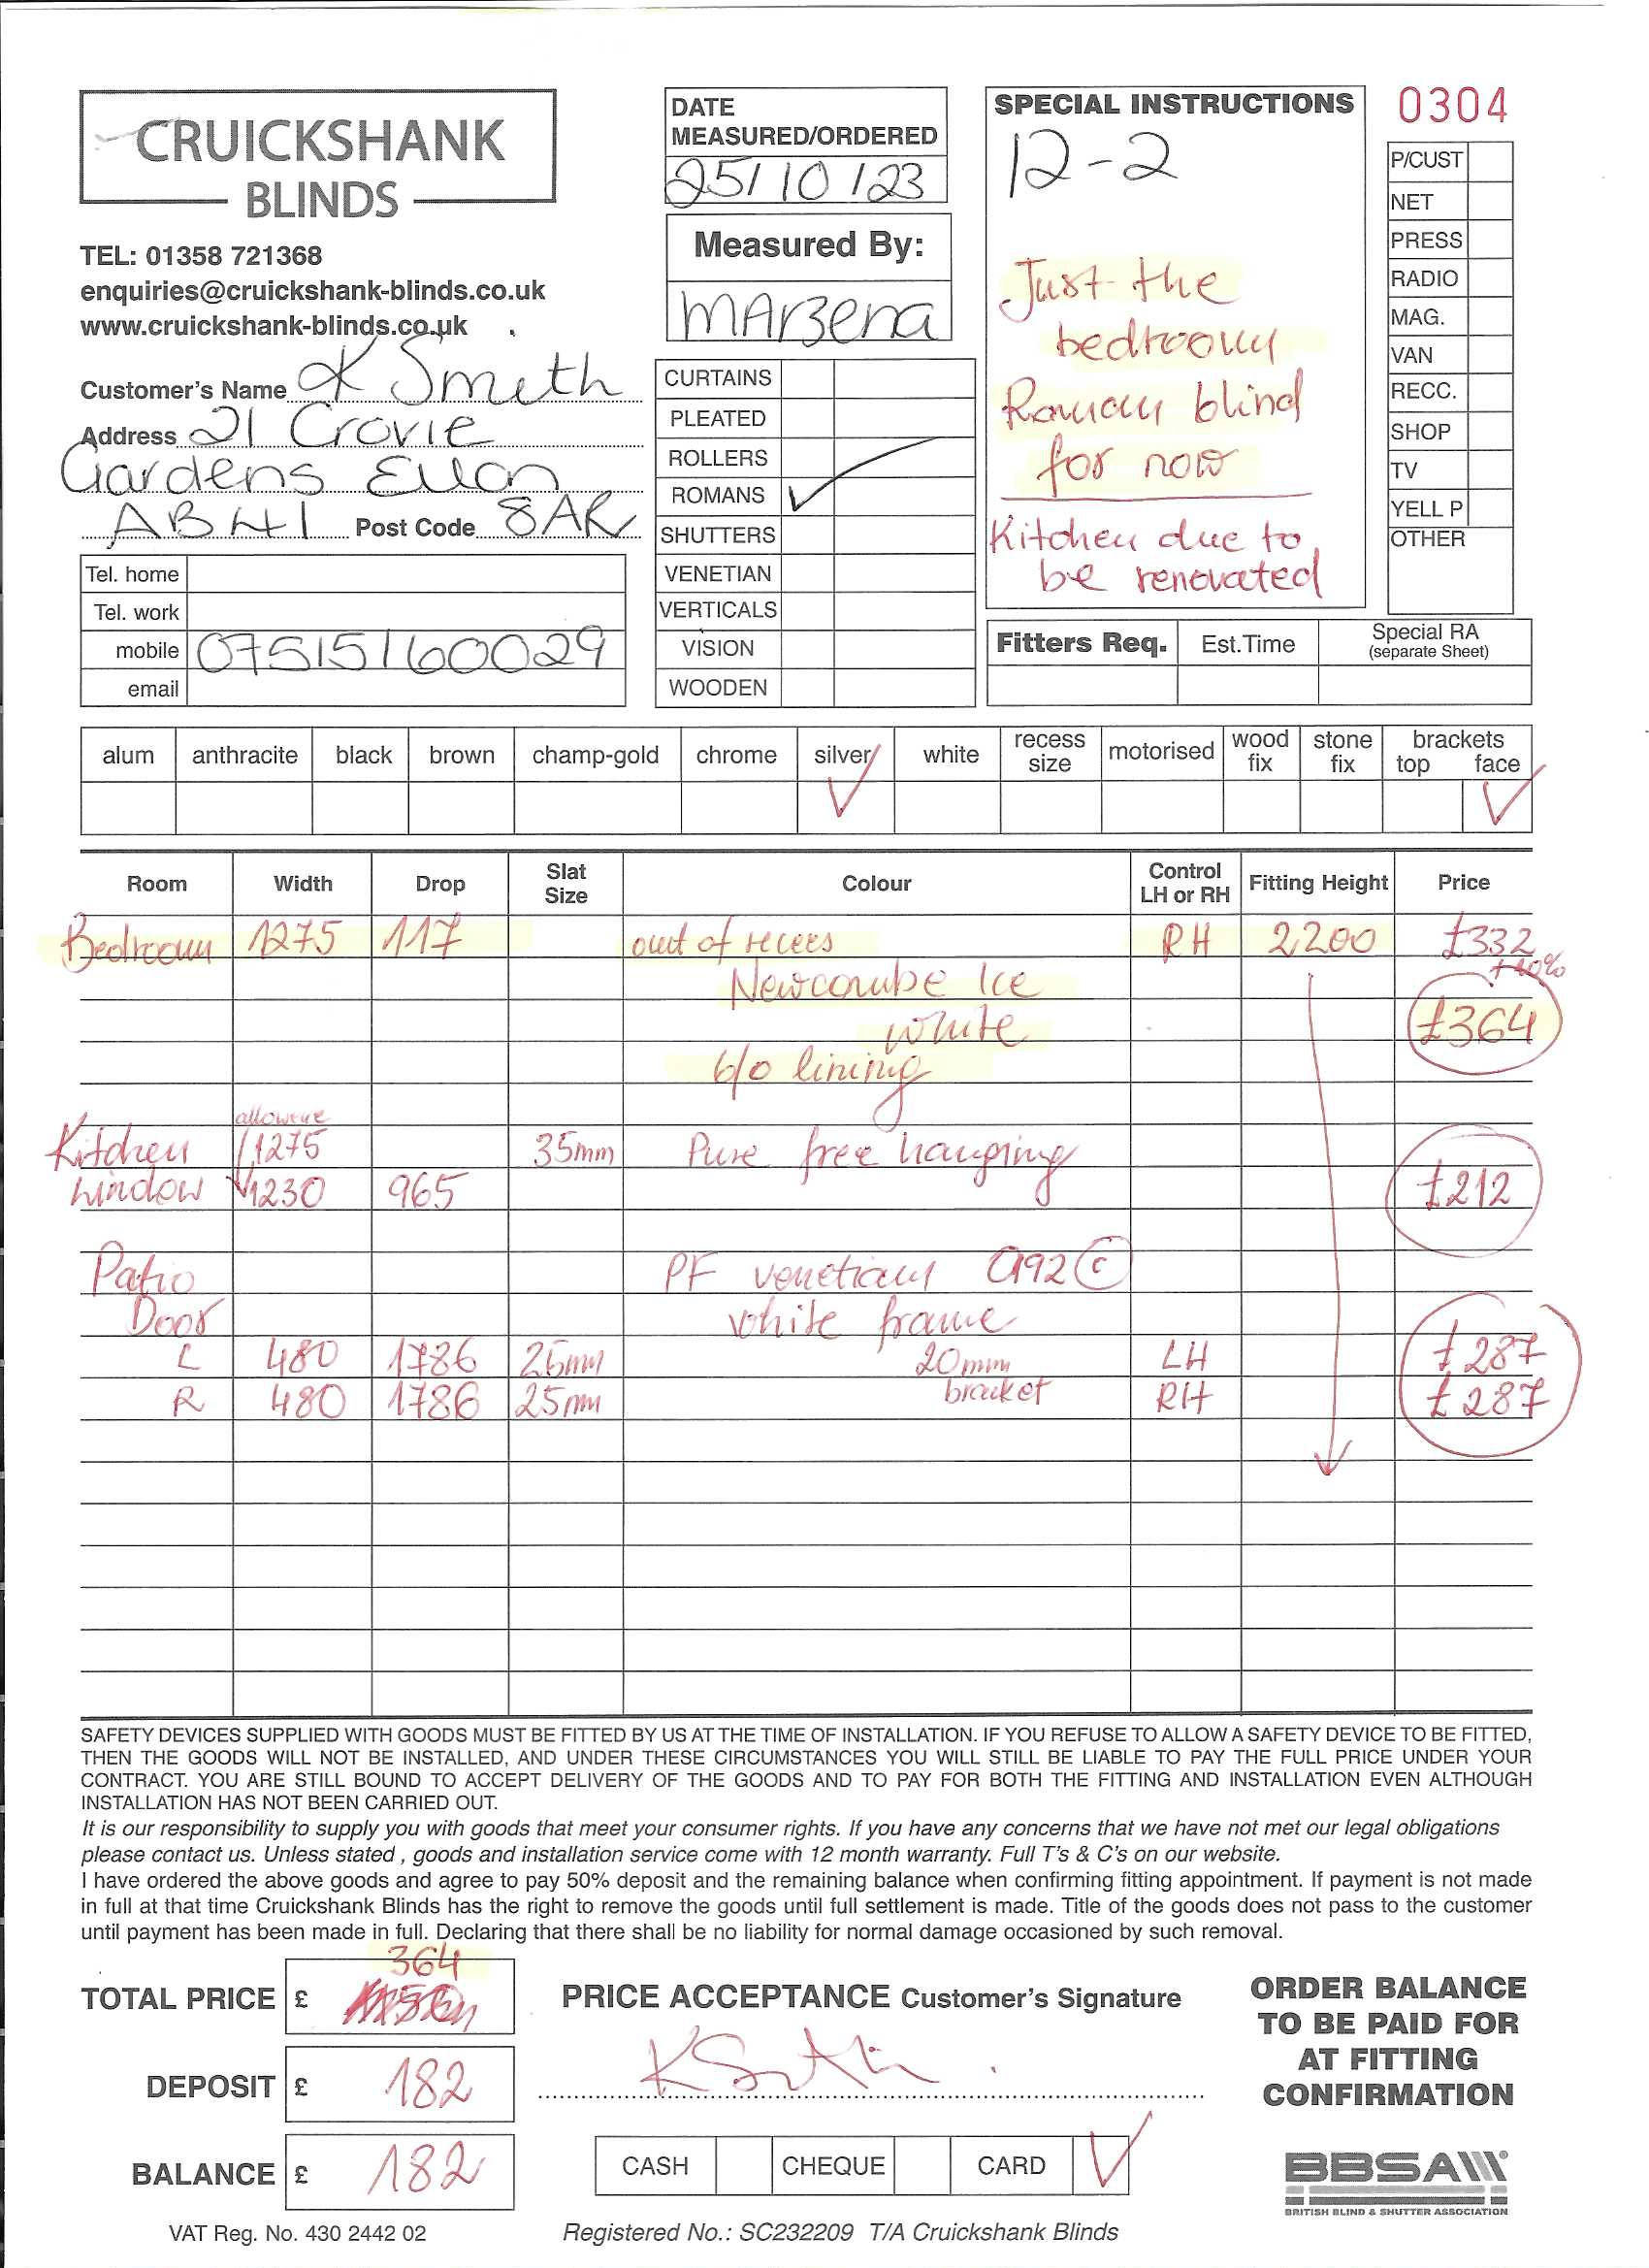 CRUICKSHANK
BLINDS
TEL: 01358 721368
enquiries@cruickshank-blinds.co.uk
www.cruickshank-blinds.co.uk
Customer's Name K Smith
Address 21 Crovie
Gardens Ellon
AB41 Post Code 8AR
Tel. home
Tel. work
mobile 07515160029
email
DATE
MEASURED/ORDERED
25/10/23
Measured By:
MARZena
CURTAINS
PLEATED
ROLLERS
ROMANS ✓
SHUTTERS
VENETIAN
VERTICALS
VISION
WOODEN
SPECIAL INSTRUCTIONS
12-2
Just the
bedroom
Roman blind
for now
Kitchen due to
be renovated
0304
P/CUST
NET
PRESS
RADIO
MAG.
VAN
RECC.
SHOP
TV
YELL P
OTHER
Fitters Req. Est.Time Special RA
(separate Sheet)
alum anthracite black brown champ-gold chrome silver white recess size motorised wood fix stone fix brackets top face
✓ ✓
Room Width Drop Slat Size Colour Control LH or RH Fitting Height Price
Bedroom 1275 117 out of recess RH 2200 £332
+10%
Newcombe Ice
white £364
b/o lining
Kitchen 1275 35mm Pure free hanging
window 1230 965 £212
Patio PF venetian C
Door white frame
L 480 1786 25mm 20mm LH £287
R 480 1786 25mm bracket RH £287
SAFETY DEVICES SUPPLIED WITH GOODS MUST BE FITTED BY US AT THE TIME OF INSTALLATION. IF YOU REFUSE TO ALLOW A SAFETY DEVICE TO BE FITTED,
THEN THE GOODS WILL NOT BE INSTALLED, AND UNDER THESE CIRCUMSTANCES YOU WILL STILL BE LIABLE TO PAY THE FULL PRICE UNDER YOUR
CONTRACT. YOU ARE STILL BOUND TO ACCEPT DELIVERY OF THE GOODS AND TO PAY FOR BOTH THE FITTING AND INSTALLATION EVEN ALTHOUGH
INSTALLATION HAS NOT BEEN CARRIED OUT.
It is our responsibility to supply you with goods that meet your consumer rights. If you have any concerns that we have not met our legal obligations
please contact us. Unless stated , goods and installation service come with 12 month warranty. Full T's & C's on our website.
I have ordered the above goods and agree to pay 50% deposit and the remaining balance when confirming fitting appointment. If payment is not made
in full at that time Cruickshank Blinds has the right to remove the goods until full settlement is made. Title of the goods does not pass to the customer
until payment has been made in full. Declaring that there shall be no liability for normal damage occasioned by such removal.
364
TOTAL PRICE £
DEPOSIT £ 182
BALANCE £ 182
VAT Reg. No. 430 2442 02
PRICE ACCEPTANCE Customer's Signature
K Smith
CASH CHEQUE CARD ✓
Registered No.: SC232209 T/A Cruickshank Blinds
ORDER BALANCE
TO BE PAID FOR
AT FITTING
CONFIRMATION
BBSA
BRITISH BLIND & SHUTTER ASSOCIATION